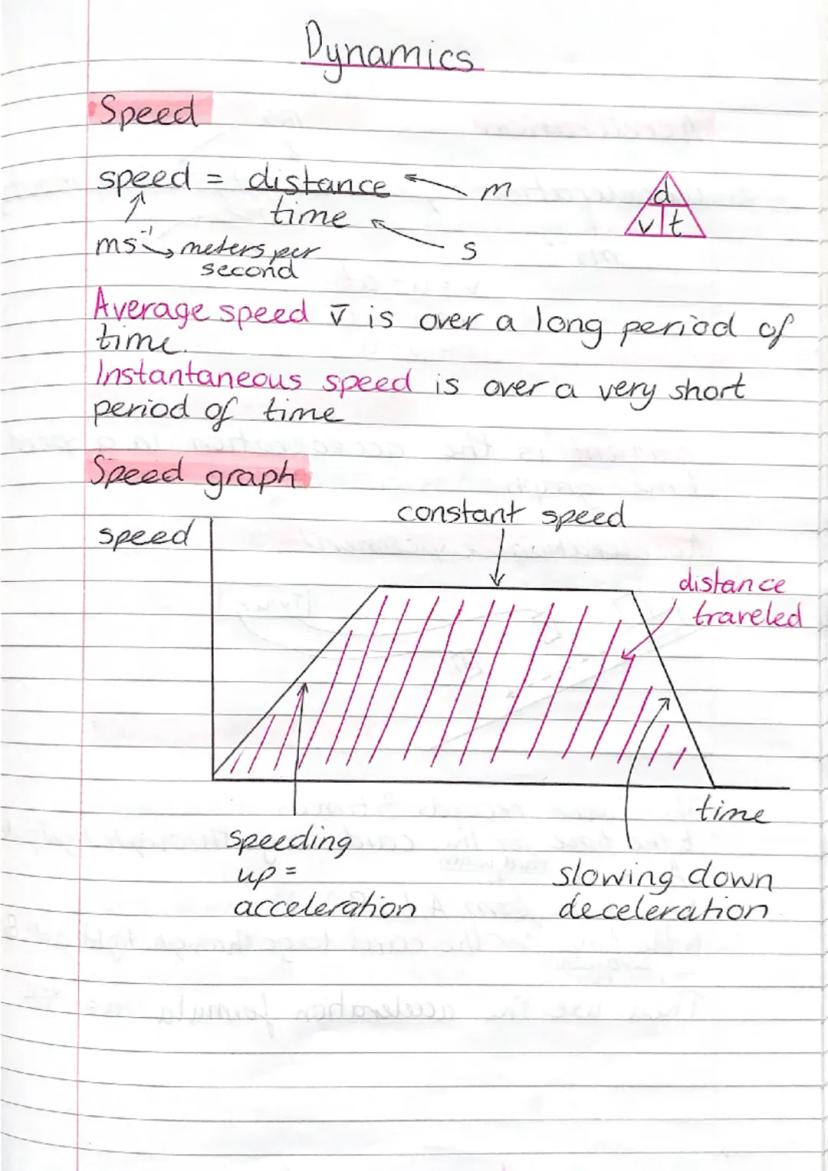 Dynamics
Speed
speed = distance ← m
time ← s
d
v t
ms⁻¹ → meters per
second
Average speed v̄ is over a long period of
time.
Instantaneous speed is over a very short
period of time
Speed graph
constant speed
speed
distance
traveled
time
speeding
up =
acceleration
slowing down
deceleration